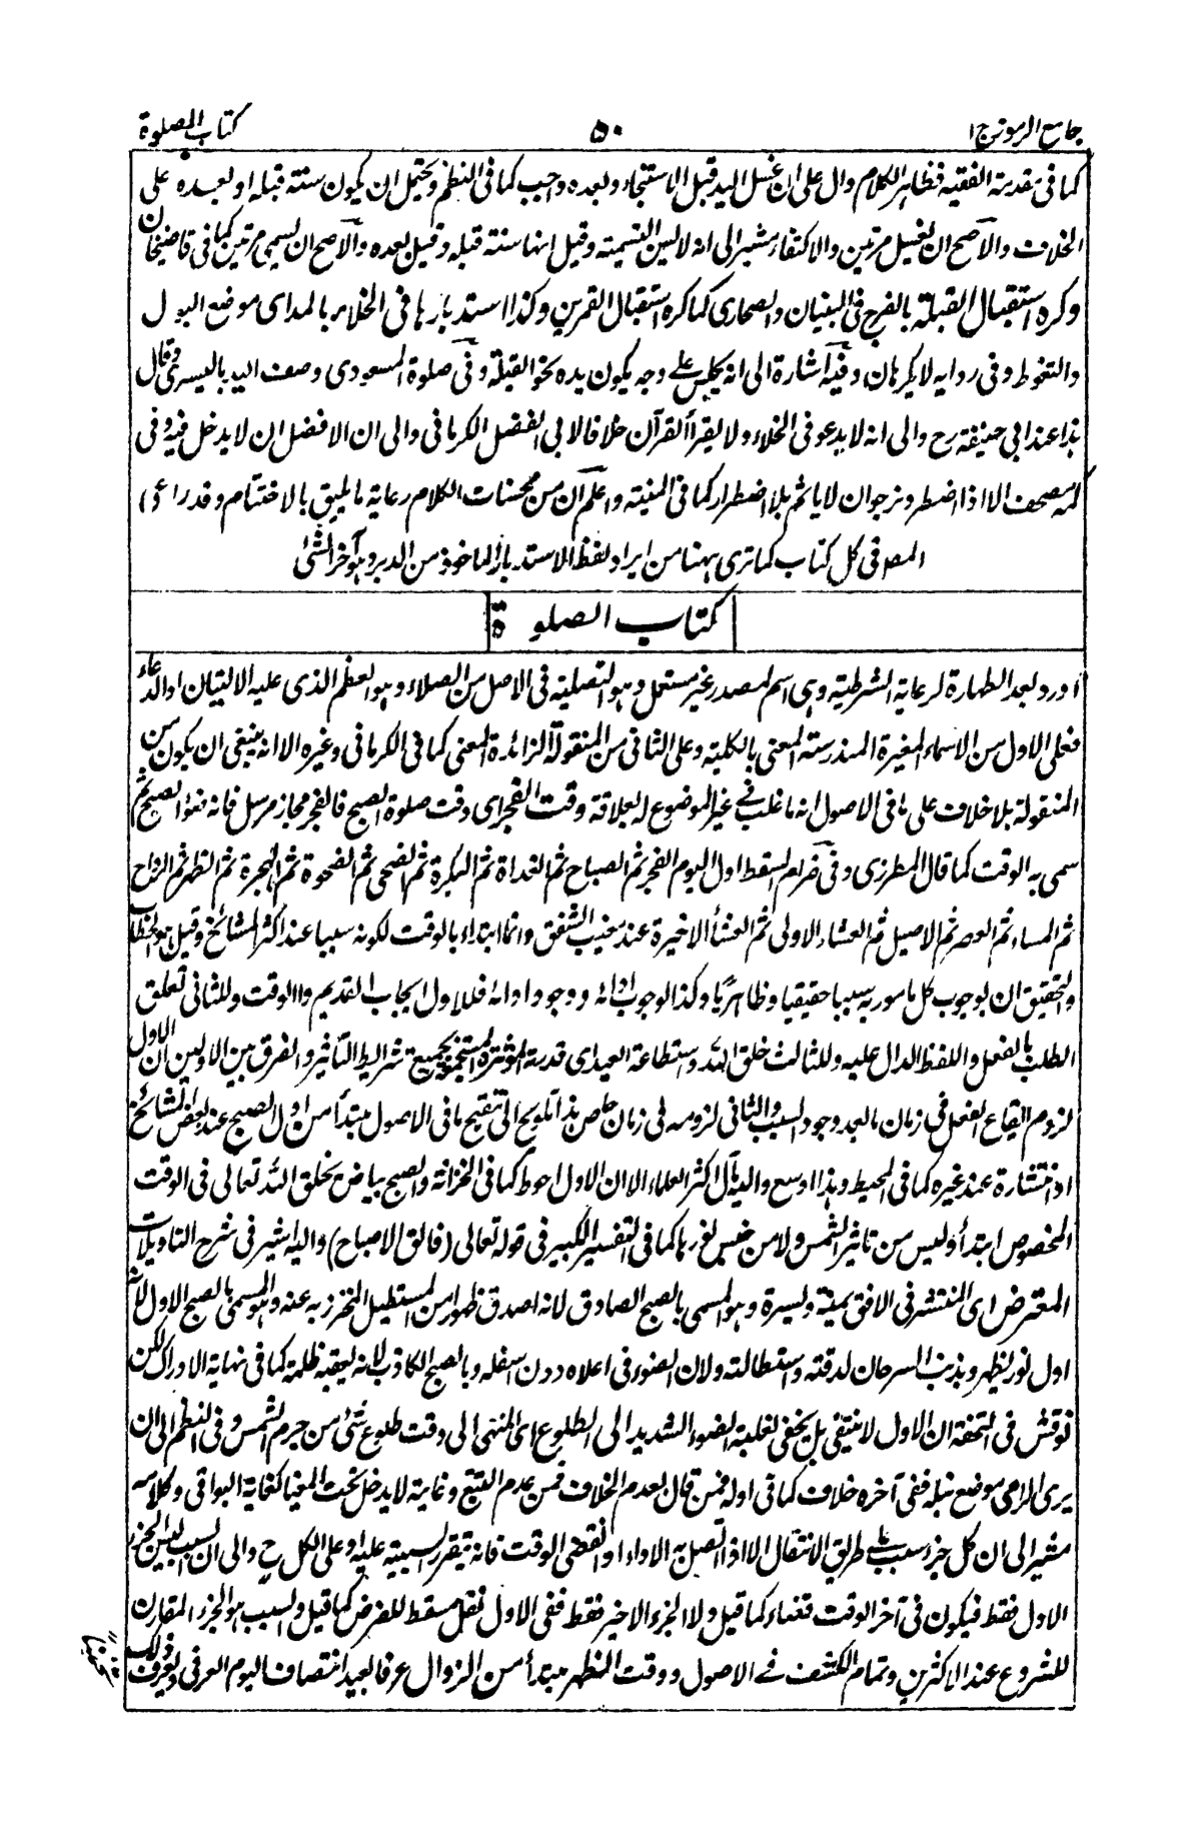 جامع الرموز ج ١
٥٠
كتاب الصلوة
كما في مقدمة الفقيه فظاهر الكلام دال على ان غسل اليد قبل الاستنجاء وبعده واجب كما في النظم ويحتمل ان يكون سنة قبله او بعده على
الخلاف والاصح ان يغسل مرتين والاكتفاء مشير الى انه لا يسن التسمية وقيل انها سنة قبله وقيل بعده والاصح ان يسمى مرتين كما في قاضيخان
وكره استقبال القبلة بالفرج في البنيان والصحارى كما كره استقبال القمرين وكذا استدبارها في الخلاء بالمد اى موضع البول
والتغوط وفي رواية لا يكرهان وفيه اشارة الى انه يجلس على وجه يكون يده نحو القبلة وفي صلوة المسعودى وصف اليد باليسرى وقال
هذا عند ابي حنيفة رح والى انه لا يدعو في الخلاء ولا يقرأ القرآن خلافا لابي الفضل الكرماني والى ان الافضل ان لا يدخل فيه وفي
كمه مصحف الا اذا اضطر ونرجو ان لا ياثم بلا اضطرار كما في المنية واعلم ان من محسنات الكلام رعاية ما يليق بالاختتام وقد راعى
المص في كل كتاب كما ترى ههنا من ايراد لفظ الاستدبار الماخوذ من الدبر وهو آخر الشئ
كتاب الصلوة
اورد بعد الطهارة لرعاية الشرطية وهى اسم لمصدر غير مستعمل وهو التصلية في الاصل من الصلاء وهو العظم الذى عليه الاليتان او الدعاء
فعلى الاول من الاسماء المغيرة المندرسة المعنى بالكلية وعلى الثاني من المنقولة الزائدة المعنى كما في الكرماني وغيره الا انه ينبغى ان يكون من
المنقولة بلا خلاف على ما في الاصول انه ما غلب في غير الموضوع له لعلاقة وقت الفجر اى وقت صلوة الصبح فالفجر مجاز مرسل فانه ضوء الصبح ثم
سمى به الوقت كما قال المطرزى وفي ضرام السقط اول اليوم الفجر ثم الصباح ثم الغداة ثم البكرة ثم الضحى ثم الضحوة ثم الهجرة ثم الظهر ثم الرواح
ثم المساء ثم العصر ثم الاصيل ثم العشاء الاولى ثم العشاء الاخيرة عند مغيب الشفق وانما ابتداء بالوقت لكونه سببا عند اكثر المشائخ وقيل هو الخطاب
والتحقيق ان لوجوب كل مامور به سببا حقيقيا وظاهريا وكذا لوجوب ادائه ووجود ادائه فللاول الايجاب القديم والوقت وللثاني تعلق
الطلب بالفعل واللفظ الدال عليه وللثالث خلق الله واستطاعة العبد اى قدرة المؤثرة المستجمعة بجميع شرائط التاثير والفرق بين الاولين ان الاول
لزوم ايقاع الفعل في زمان ما بعد وجود السبب والثاني لزومه في زمان خاص هذا تلويح الى تنقيح ما في الاصول مبتدأ من اول الصبح عند بعض المشائخ
او انتشاره عند غيره كما في المحيط وهذا اوسع واليه مال اكثر العلماء الا ان الاول احوط كما في الخزانة والصبح بياض يخلق الله تعالى في الوقت
المخصوص ابتدأ وليس من تاثير الشمس ولا من جنس نورها كما في التفسير الكبير في قوله تعالى (فالق الاصباح) واليه اشير في شرح التاويلات
المعترض اى المنتشر في الافق يمينة ويسرة وهو المسمى بالصبح الصادق لانه اصدق ظهورا من المستطيل المتحرز به عنه وهو المسمى بالصبح الاول لانه
اول نور يظهر وبذنب السرحان لدقته واستطالته ولان الضوء في اعلاه دون اسفله وبالصبح الكاذب لانه يعقبه ظلمة كما في نهاية الادراك لكن
نوقش في التحفة ان الاول لا ينتفى بل يخفى لغلبة الضوء الشديد الى الطلوع اى المنتهى الى وقت طلوع شئ من جرم الشمس وفي النظم الى ان
يرى الرامى موضع نبله ففى آخره خلاف كما في اوله فمن قال بعدم الخلاف فمن عدم التتبع وغاية لا يدخل تحت المغيا كغاية البواقى وكلامه
مشير الى ان كل جزء سبب على طريق الانتقال الا اذا اتصل به الاداء او انقضى الوقت فانه يتقرر السببية عليه او على الكل ح والى ان السبب ليس الجزء
الاول فقط فيكون في آخر الوقت قضاء كما قيل ولا الجزء الاخير فقط ففى الاول نفل مسقط للفرض كما قيل والسبب هو الجزء المقارن
للشروع عند الاكثرين وتمام الكشف في الاصول ووقت الظهر مبتدأ من الزوال عرفا بعيد انتصاف اليوم العرفى ويعرف ذلك